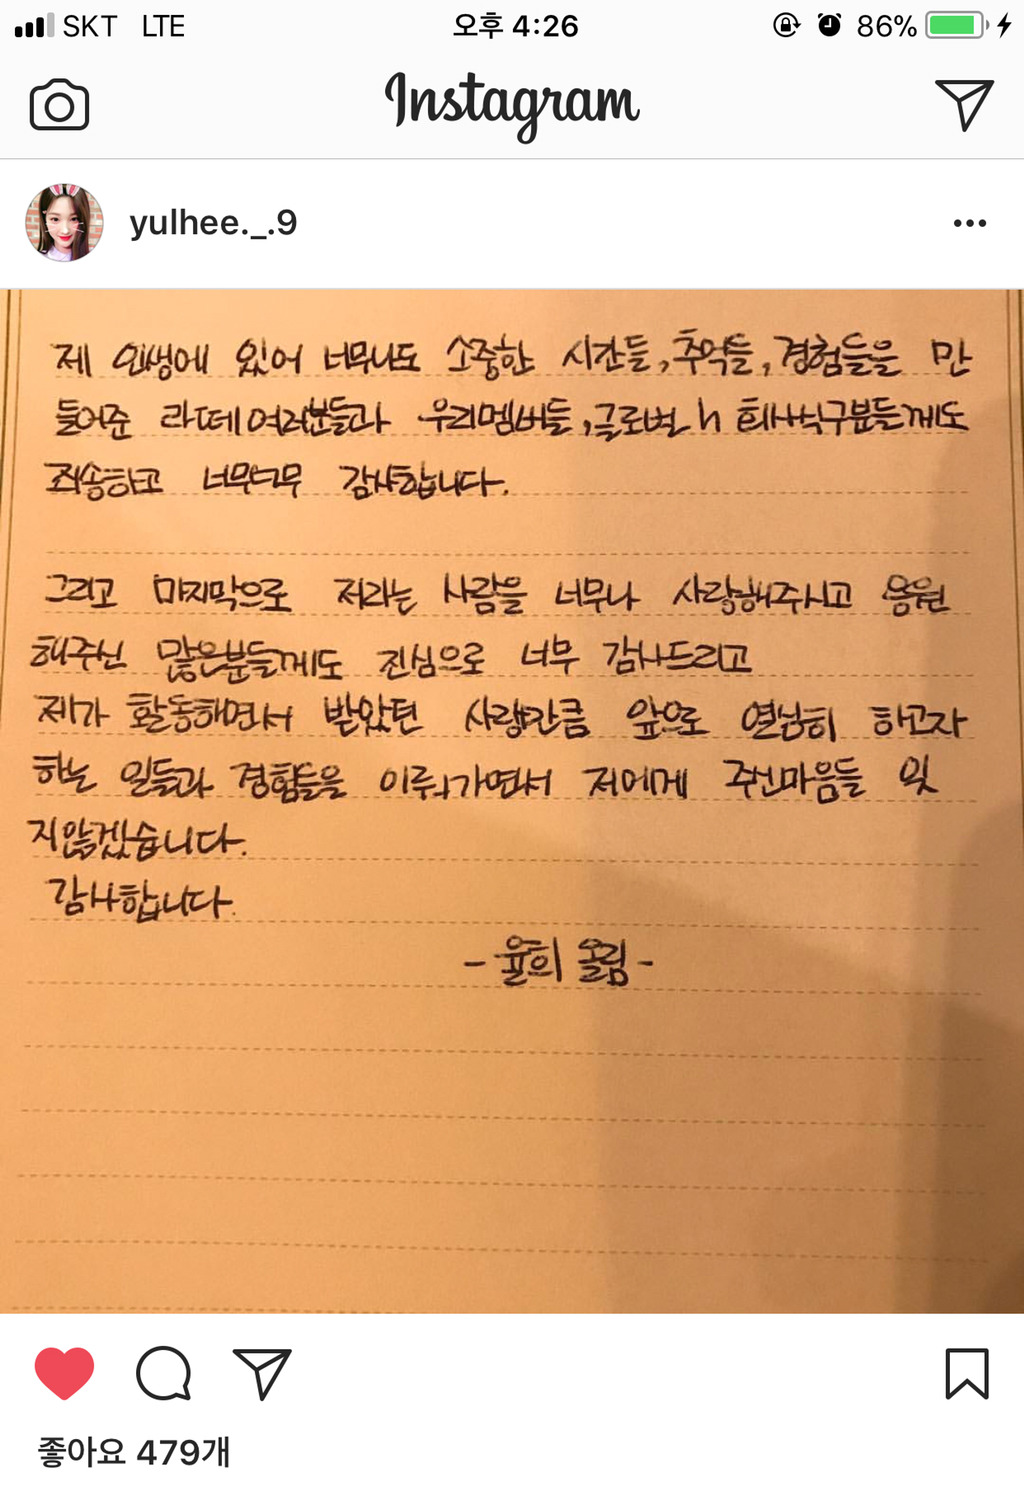 SKT LTE 오후 4:26 86%
Instagram
yulhee._.9
제 인생에 있어 너무나도 소중한 시간들, 추억들, 경험들을 만
들어준 라떼여러분들과 우리멤버들, 글로벌 h 회사식구분들께도
죄송하고 너무너무 감사합니다.
그리고 마지막으로 저라는 사람을 너무나 사랑해주시고 응원
해주신 많은분들께도 진심으로 너무 감사드리고
제가 활동하면서 받았던 사랑만큼 앞으로 열심히 하고자
하는 일들과 경험들을 이뤄가면서 저에게 주신마음들 잊
지않겠습니다.
감사합니다.
- 율희 올림 -
좋아요 479개